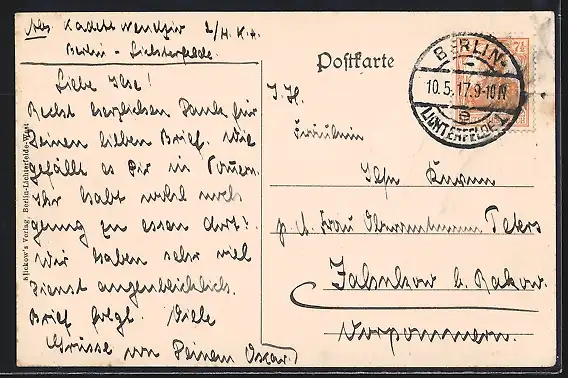 Abs. Kadett Wendfix 2/H.K.A.
Berlin - Lichterfelde.
Postkarte
BERLIN-
10.5.17.9-10N
e
LICHTERFELDE 1
7½
Liebe Ilse!
Recht herzlichen Dank für
Deinen lieben Brief. Wie
gefällt es Dir in Pomm.
Ihr habt wohl noch
genug zu essen dort?
Wir haben sehr viel
Dienst augenblicklich.
Brief folgt. Viele
Grüsse von Deinem Oscar.
Fräulein
Ilse
p. A. Frau Oberamtmann Peters
b. Rakow.
Vorpommern.
Klickow's Verlag, Berlin-Lichterfelde-West